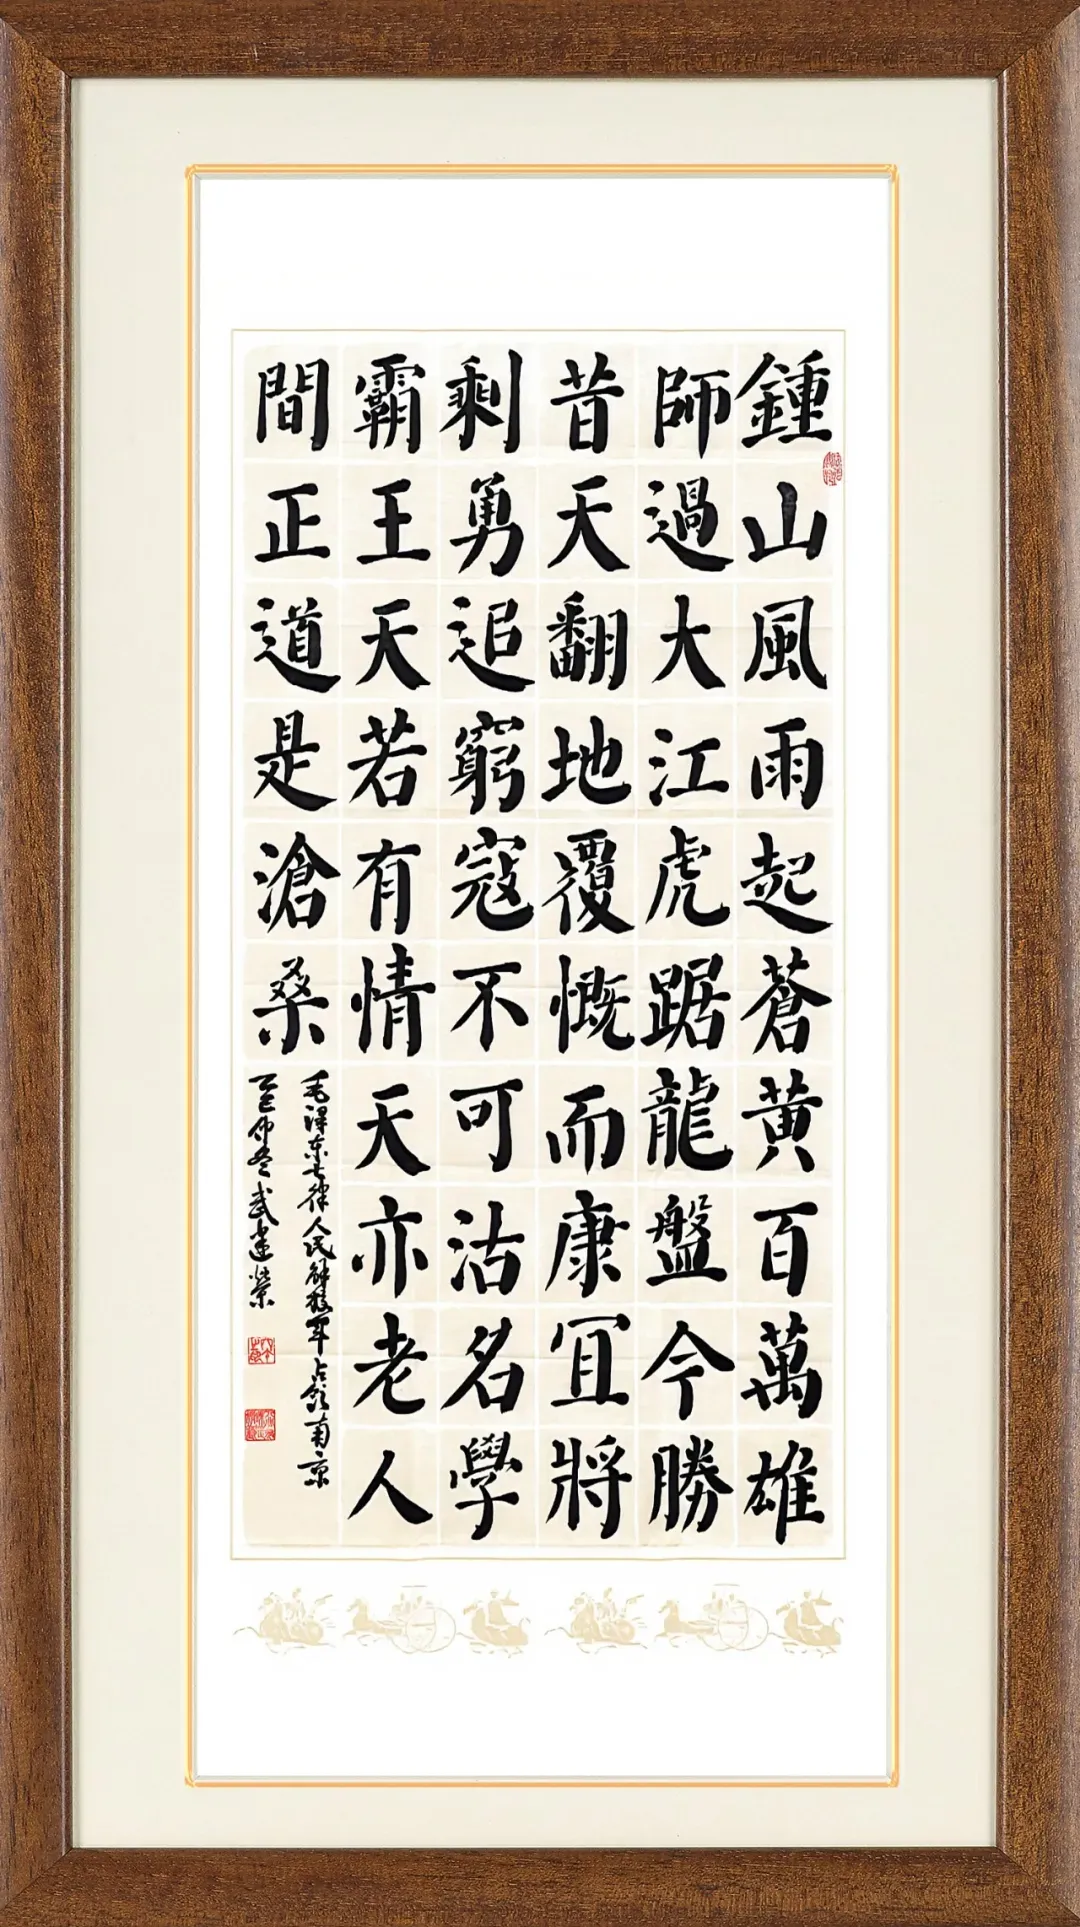 鍾山風雨起蒼黃百萬雄
師過大江虎踞龍盤今勝
昔天翻地覆慨而康冝將
剩勇追窮寇不可沽名學
霸王天若有情天亦老人
間正道是滄桑
毛泽东七律人民解放军占领南京
乙巳仲冬武建榮